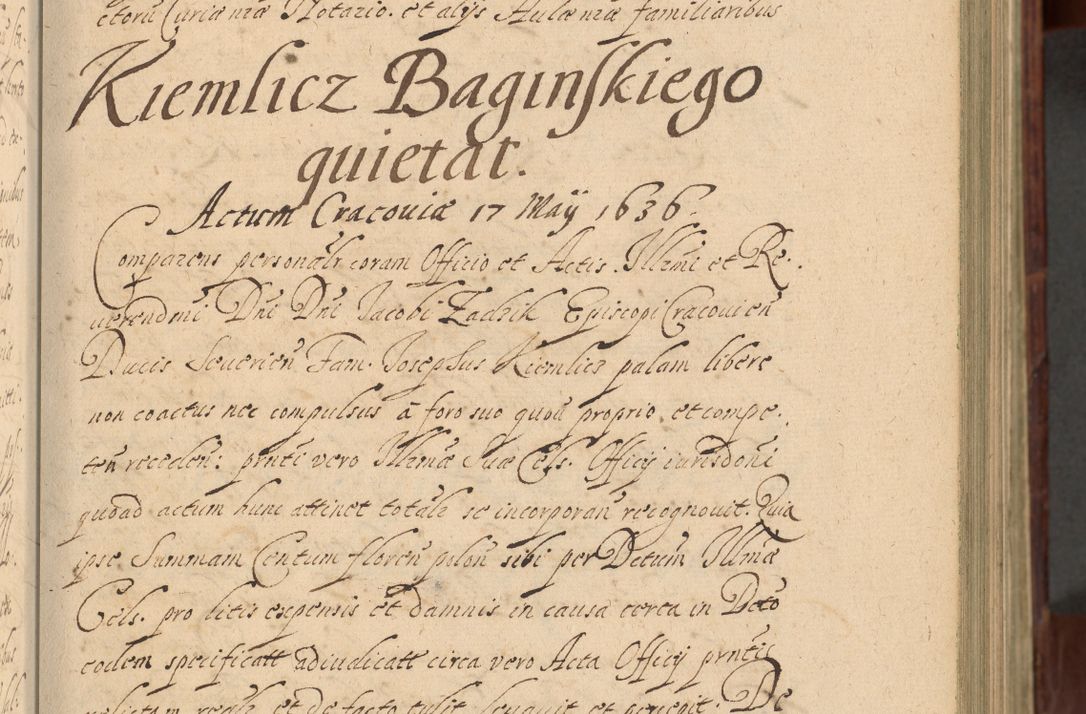 ctorū Curiæ mæ Notario. et alijs Aulæ mæ familiaribus
Kiemlicz Baginskiego
quietat.
Actum Cracouiæ 17 Maÿ 1636.
Comparens personalr coram Officio et Actis Illmi et Re.
uerendmi Dni Dni Jacobi Zadzik Episcopi Cracouien
Ducis Seuerien Fam. Josephus Kiemlicz palam libere
non coactus nec compulsus à foro suo quou proprio et compe.
ten receden: prnti vero Illmæ Suæ Cels. Officij iurisdoni
quoad actum hunc attinet totalr se incorporan recognouit. Quia
ipse Summam Centum floren polon sibi per Detum Illmæ
Cels. pro litis expensis et damnis in causa certa in Dcto
eodem specificatt adiudicatt circa vero Acta Officij prntis
relictam realr et de facto tulit leuauit et percepit. De